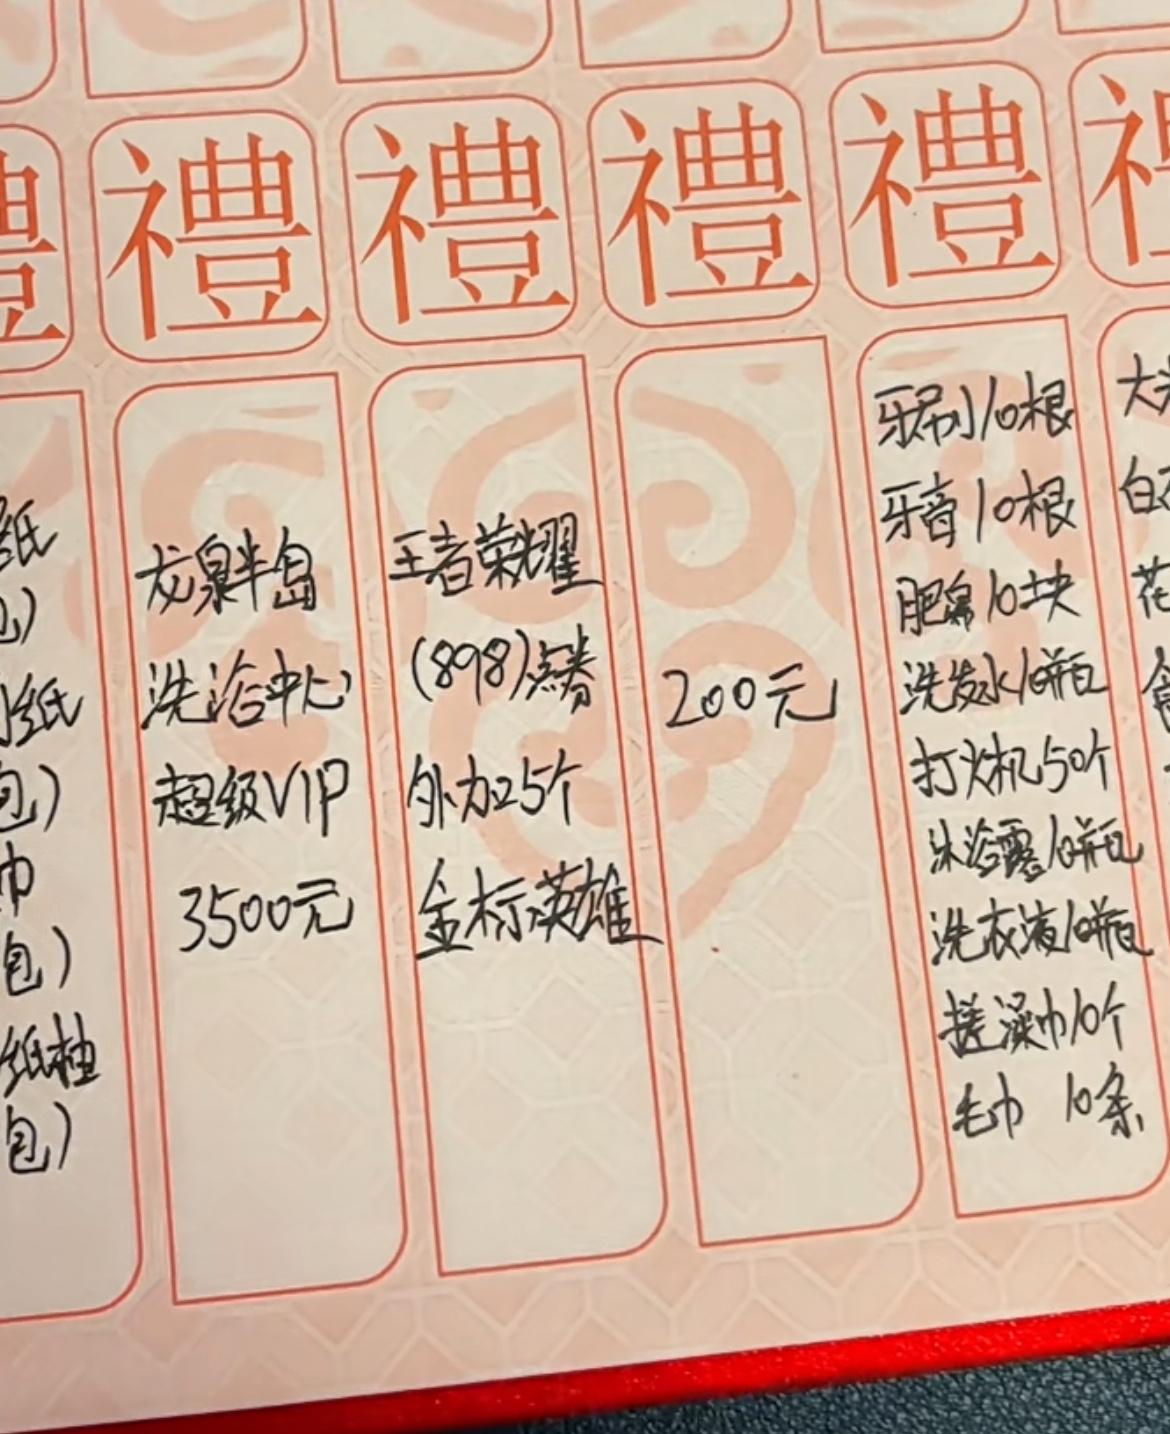 禮
禮
禮
禮
禮
禮
纸
包)
纸
包)
巾
包)
纸
包)
龙泉半岛
洗浴中心
超级VIP
3500元
王者荣耀
(898)点券
外加25个
金标英雄
200元
牙刷10根
牙膏10根
肥皂10块
洗发水10瓶
打火机50个
沐浴露10瓶
洗衣液10瓶
搓澡巾10个
毛巾 10条
大
白
花